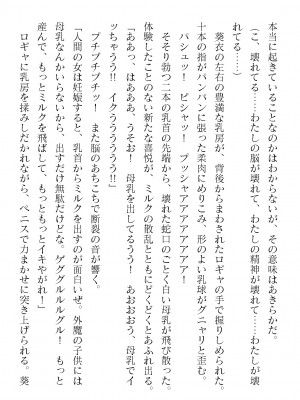 本当に起きていることなのかはわからないが、その意味はあきらかだ。
「こ、壊れてる……わたしの脳が壊れて……わたしの精神が壊れて……わたしが壊れてる……」
葵衣の左右の豊満な乳房が、背後からまわされたロギャの手で握りしめられる。
十本の指がパンパンに張った柔肉にめりこみ、形のよい乳球がグニャリと歪む。
パシュッ！　ピシャッ！　プッシャアアアアアアア！
そそり勃つ二本の乳首の先端から、壊れた蛇口のごとく白い母乳が飛び散った。
体験したことのない新たな喜悦が、ミルクの散乱とともにどくどくとあふれ出る。
「ああっ、はあああ、うそお！　母乳を出してるう！　あおおおう、母乳でイッちゃううう!!　イクううううううう!!」
ブチブチブチッ！　また脳のあちこちで断裂の音が響く。
「人間の女は妊娠すると、乳首からミルクを出すのが面白いぜ。外魔の子供には母乳なんかいらないから、出すだけ無駄だけどな。ゲググルルグル！　もっと産んで、もっとミルクを飛ばして、もっとイキやがれ！」
ロギャに乳房を揉みしだかれながら、ペニスで力まかせに突き上げられる。葵